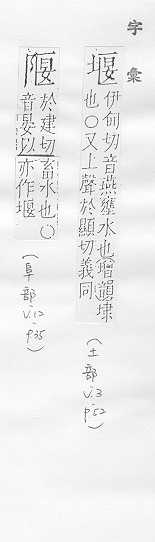 字彙
堰 伊甸切音燕壅水也增韻埭
也○又上聲於顯切義同
(土部-v.3-p.52)
隁 於建切畜水也○
音晏以亦作堰
(阜部-v.12-p.35)